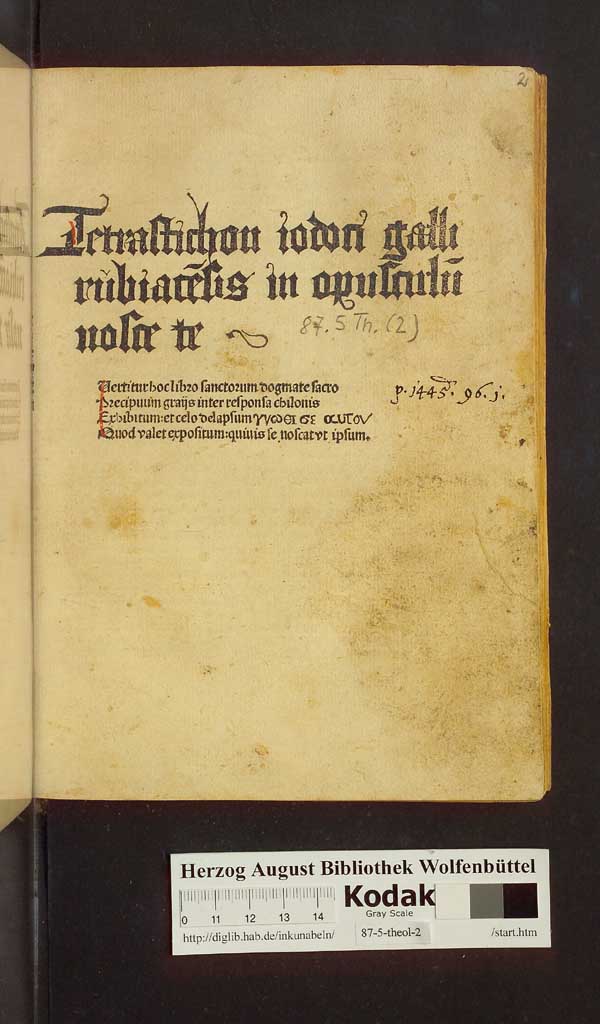 2
Tetrastichon iodoci galli
rubiacēsis in opusculū
nosce te
87.5 Th. (2)
Vertitur hoc libro sanctorum dogmate sacro
Precipuum graijs inter responsa chilonis
Exhibitum: et celo delapsum γνωθι σε αυτον
Quod valet expositum: quiuis se noscat vt ipsum.
p. 1445. 96. 1.
Herzog August Bibliothek Wolfenbüttel
0 11 12 13 14
Kodak
Gray Scale
http://diglib.hab.de/inkunabeln/
87-5-theol-2
/start.htm